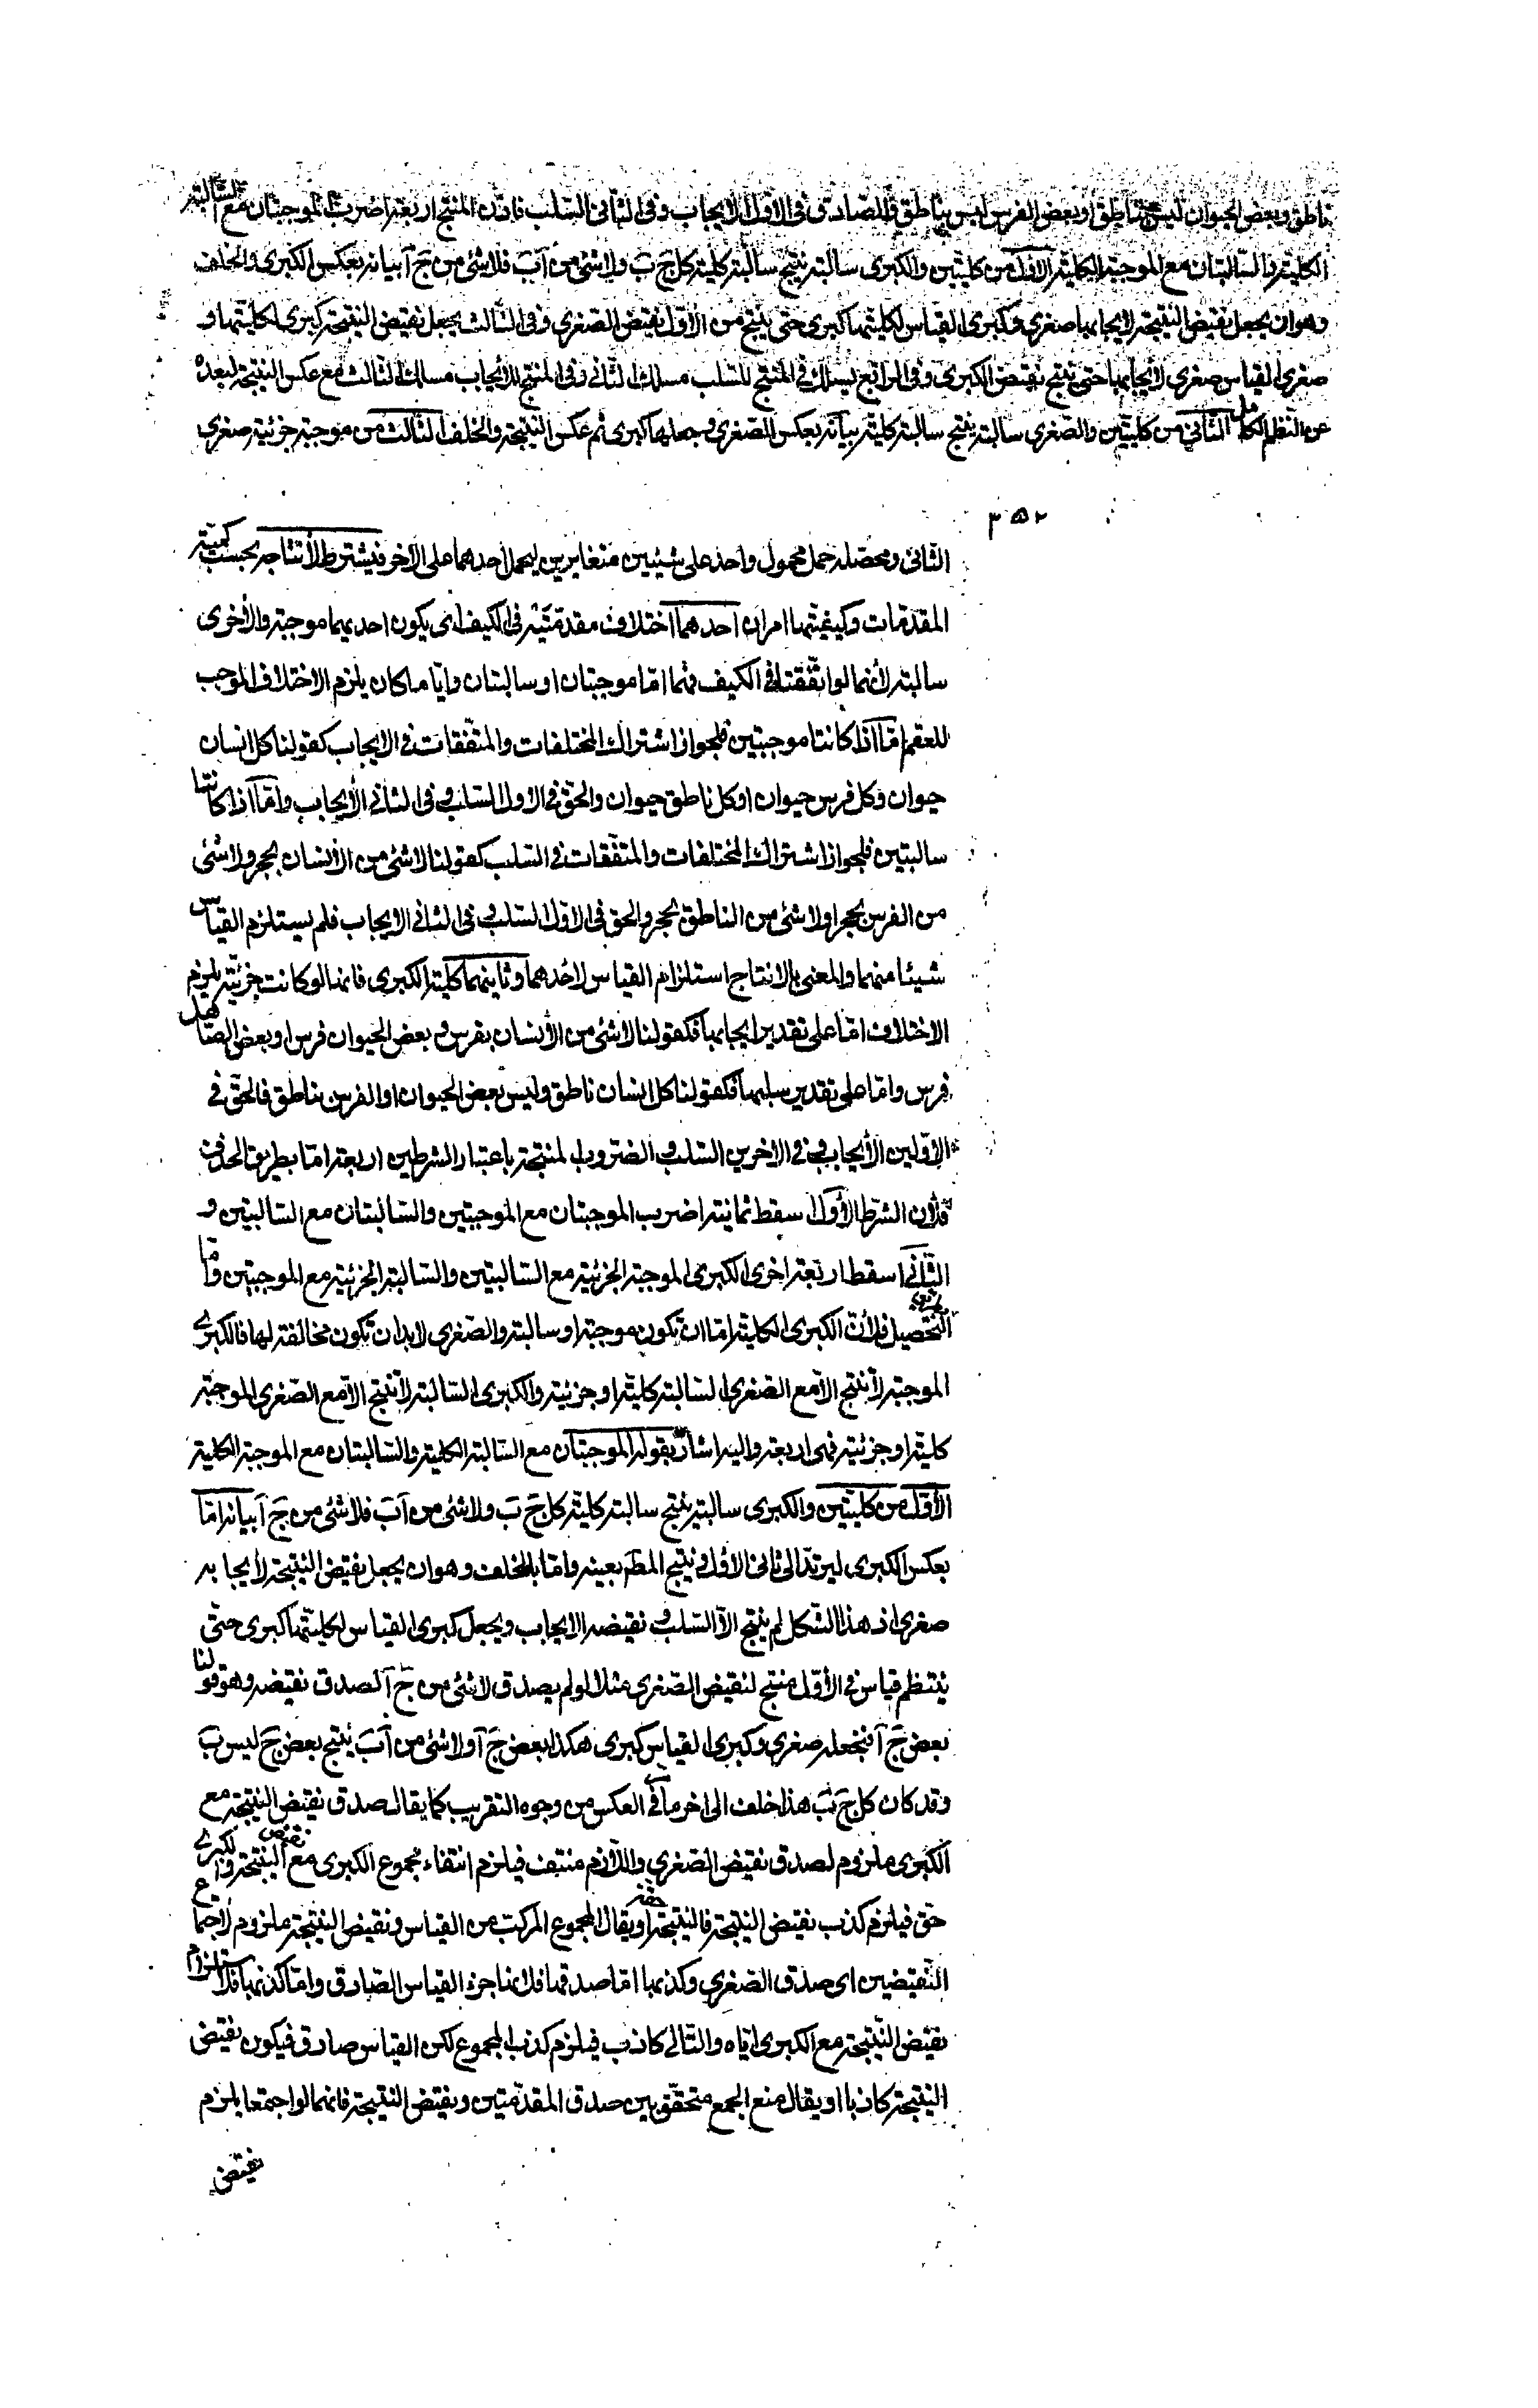 ناطق وبعض الحيوان ليس بناطق او بعض الفرس ليس بناطق والصادق فى الاول الايجاب وفى الثانى السلب فاذن المنتج اربعة اضرب الموجبتان مع السالبة
الكلية والسالبتان مع الموجبة الكلية الاول من كليتين والكبرى سالبة ينتج سالبة كلية كل ج ب ولا شئ من ا ب فلا شئ من ج ا بيانه بعكس الكبرى والخلف
وهو ان يجعل نقيض النتيجة لايجابها صغرى وكبرى القياس لكليتها كبرى حتى ينتج من الاول نقيض الصغرى وفى الثالث يجعل نقيض النتيجة كبرى لكليتها و
صغرى القياس صغرى لايجابها حتى ينتج نقيض الكبرى وفى الرابع ليسلك فى المنتج للسلب مسلك الثانى وفى المنتج للايجاب مسلك الثالث مع عكس النتيجة لبعده
عن النظم الكامل الثانى من كليتين والصغرى سالبة ينتج سالبة كلية بيانه بعكس الصغرى وجعلها كبرى ثم عكس النتيجة والخلف الثالث من موجبة جزئية صغرى
٣٥٢
الثانى ومحصله حمل محمول واحد على شيئين متغايرين ليحمل احدهما على الآخر فيشترط لأنتاجه بحسب كمية
المقدمات وكيفيتها امران احدهما اختلاف مقدمتيه فى الكيف اى يكون احديهما موجبة والأخرى
سالبة لأنهما لو اتفقتا فى الكيف فهما امّا موجبتان او سالبتان وايّا ما كان يلزم الاختلاف الموجب
للعقم امّا اذا كانتا موجبتين فلجواز اشتراك المختلفات والمتفقات فى الايجاب كقولنا كل انسان
حيوان وكل فرس حيوان او كل ناطق حيوان والحق فى الاول السلب وفى الثانى الأيجاب وامّا اذا كانتا
سالبتين فلجواز اشتراك المختلفات والمتفقات فى السلب كقولنا لا شئ من الأنسان بحجر ولا شئ
من الفرس بحجر او لا شئ من الناطق بحجر والحق فى الاول السلب وفى الثانى الايجاب فلم يستلزم القياس
شيئا منهما والمعنى بالانتاج استلزام القياس لاحدهما وثانيهما كلية الكبرى فانها لو كانت جزئية يلزم
الاختلاف امّا على تقدير ايجابها فكقولنا لا شئ من الأنسان بفرس وبعض الحيوان فرس او بعض الصاهل
فرس وامّا على تقدير سلبها فكقولنا كل انسان ناطق وليس بعض الحيوان او الفرس بناطق فالحق فى
الأولين الأيجاب وفى الاخرين السلب والضروب المنتجة باعتبار الشرطين اربعة امّا بطريق الحذف
فلأن الشرط الأول اسقط ثمانية اضرب الموجبتان مع الموجبتين والسالبتان مع السالبتين و
الثانى اسقط اربعة اخرى الكبرى الموجبة الجزئية مع السالبتين والسالبة الجزئية مع الموجبتين وامّا
بطريق التحصيل فلأن الكبرى الكلية امّا ان تكون موجبة او سالبة والصغرى لا بد ان تكون مخالفة لها فالكبرى
الموجبة لا تنتج الاّ مع الصغرى السالبة كلية او جزئية والكبرى السالبة لا تنتج الاّ مع الصغرى الموجبة
كلية او جزئية فهى اربعة واليه اشار بقوله الموجبتان مع السالبة الكلية والسالبتان مع الموجبة الكلية
الأوّل من كليتين والكبرى سالبة ينتج سالبة كلية كل ج ب ولا شئ من ا ب فلا شئ من ج ا بيانه امّا
بعكس الكبرى ليرتد الى ثانى الاول وينتج المط بعينه وامّا بالخلف وهو ان يجعل نقيض النتيجة لأيجابه
صغرى اذ هذا الشكل لم ينتج الاّ السلب ونقيضه الايجاب ويجعل كبرى القياس لكليتها كبرى حتى
ينتظم قياس فى الأول منتج لنقيض الصغرى مثلا لو لم يصدق لا شئ من ج ا لصدق نقيضه وهو قولنا
بعض ج ا فنجعله صغرى وكبرى القياس كبرى هكذا بعض ج ا ولا شئ من ا ب ينتج بعض ج ليس ب
وقد كان كل ج ب هذا خلف الى اخر ما فى العكس من وجوه التقريب كما يقال صدق نقيض النتيجة مع
الكبرى ملزوم لصدق نقيض الصغرى واللازم منتف فيلزم انتفاء مجموع الكبرى مع نقيض النتيجة والكبرى
حق فيلزم كذب نقيض النتيجة فالنتيجة حقة او يقال المجموع المركب من القياس ونقيض النتيجة ملزوم لاجتماع
النقيضين اى صدق الصغرى وكذبها امّا صدقها فلأنها جزء القياس الصادق وامّا كذبها فلاستلزام
نقيض النتيجة مع الكبرى اياه والتالى كاذب فيلزم كذب المجموع لكن القياس صادق فيكون نقيض
النتيجة كاذبا او يقال منع الجمع متحقق بين صدق المقدمتين ونقيض النتيجة فانهما لو اجتمعا يلزم
نقيض